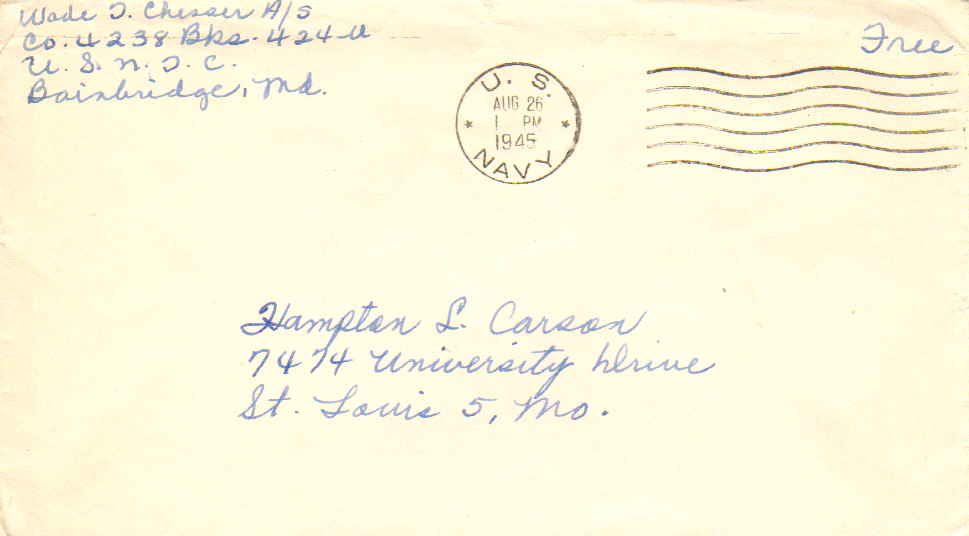 Wade T. Chesser A/S
Co. 4238 Bks. 424-U
U. S. N. T. C.
Bainbridge, Md.
Free
U. S.
AUG 26
1 PM
1945
NAVY
Hampton L. Carson
7474 University Drive
St. Louis 5, Mo.